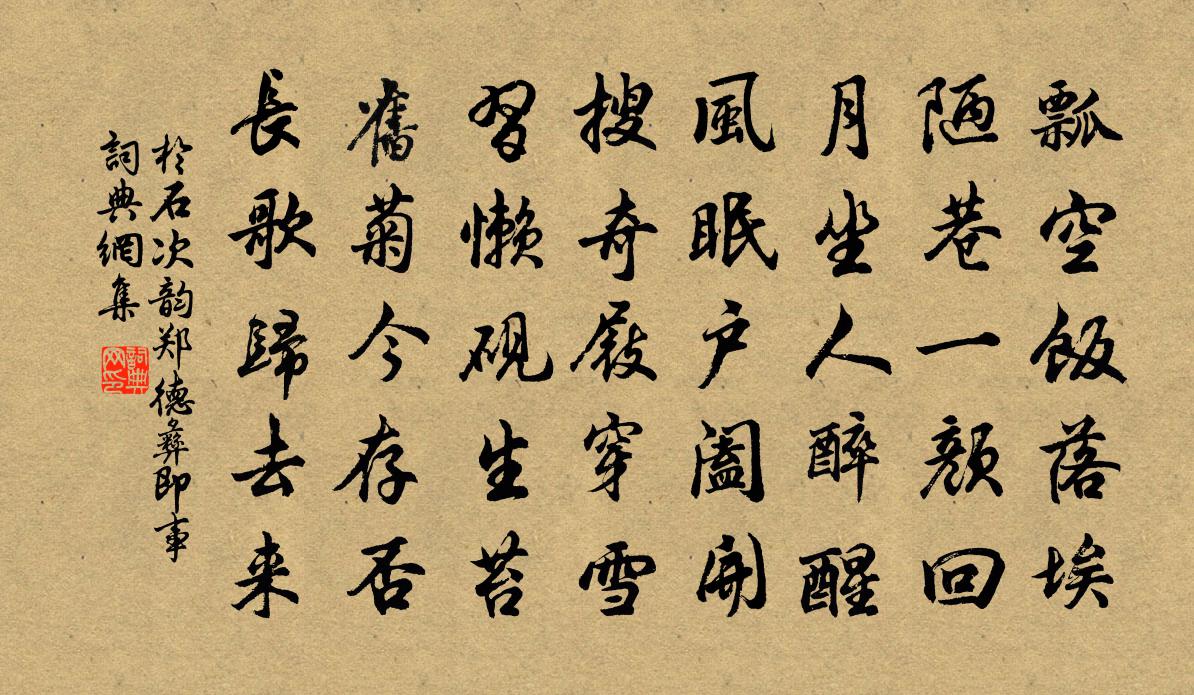 瓢空飯落埃
陋巷一顏回
月坐人醉醒
風眠户闔開
搜奇屐穿雪
習懶硯生苔
舊菊今存否
長歌歸去来
於石次韵郑德彝即事
詞典網集
詞典网印